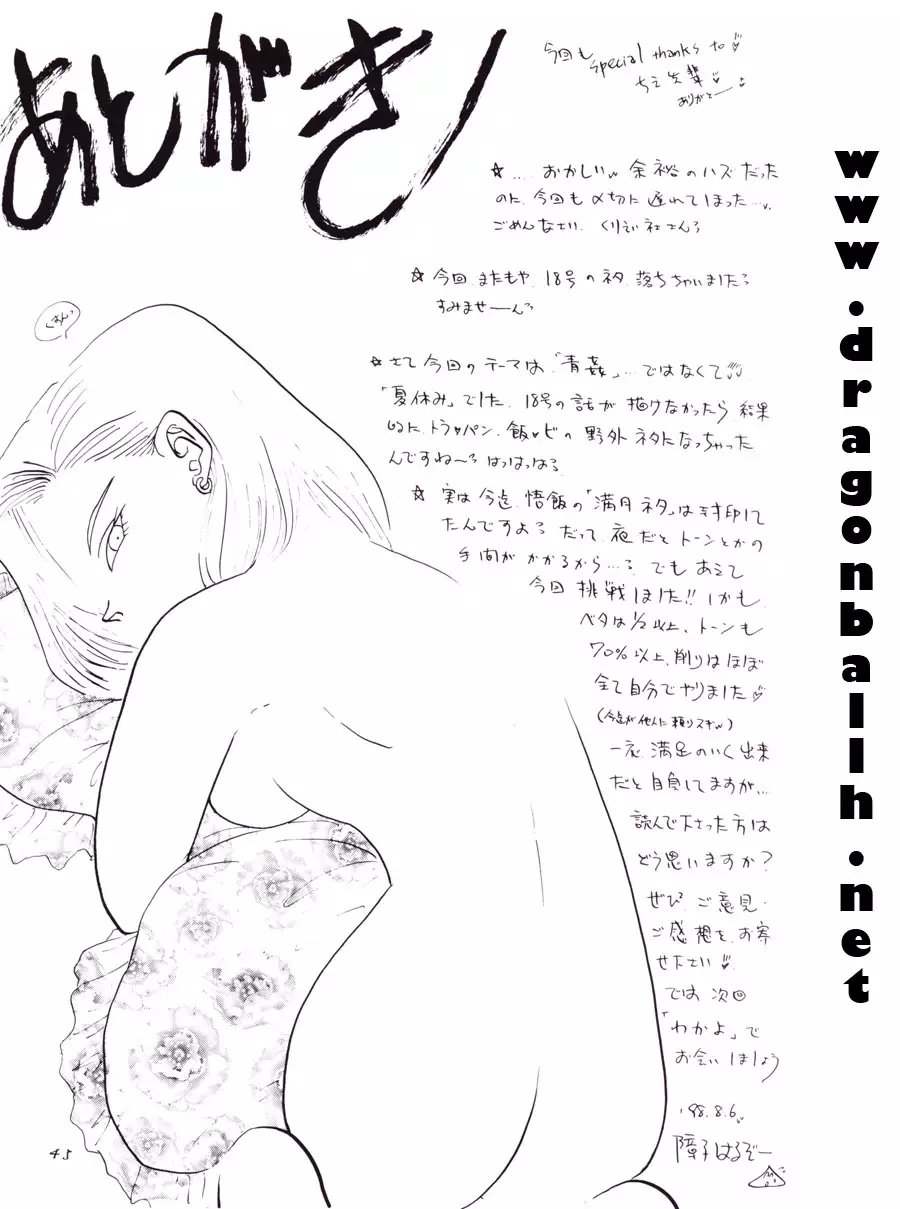 あとがき
今回も
special thanks to
ちえ先輩
ありがとー
☆‥‥おかしい 余裕のハズだった
のに、今回も〆切に遅れてしまった…
ごめんなさい、くりえい社さん
☆今回、またもや、18号のネタ、落ちちゃいました
すみませーん
☆さて今回のテーマは、「青姦」…ではなくて
「夏休み」でした。18号の話が描けなかったら結果
的に、トラ♡パン、飯♡ビの野外ネタになっちゃった
んですね〜 はっはっは
☆実は今迄、悟飯の「満月ネタ」は封印して
たんですよ だって、夜だとトーンとかの
手間がかかるから…。でもあえて
今回挑戦しました!!しかも、
ベタは1/2以上、トーンも
70%以上、削りはほぼ
全て自分でやりました
(今迄が他人に頼りスギ)
一応、満足のいく出来
だと自負してますが…
読んで下さった方は
どう思いますか?
ぜひ、ご意見・
ご感想を、お寄
せ下さい
では次回
「わかよ」で
お会いしましょう
'98.8.6
障子はるぞー
45
www.dragonballh.net